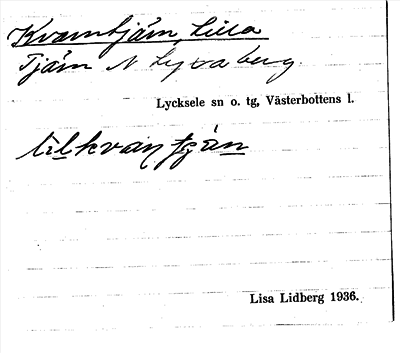 Kvarntjärn, Lilla
Tjärn N Lyvaberg.
Lycksele sn o. tg, Västerbottens l.
lilkvan tjän
Lisa Lidberg 1936.